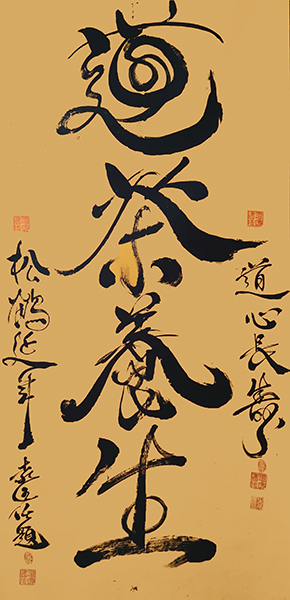 道心長壽
道茶養生
松鶴延年